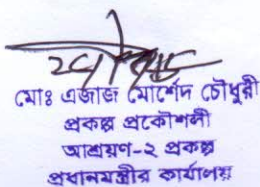 মোঃ এজাজ মোর্শেদ চৌধুরী
প্রকল্প প্রকৌশলী
আশ্রয়ণ-২ প্রকল্প
প্রধানমন্ত্রীর কার্যালয়